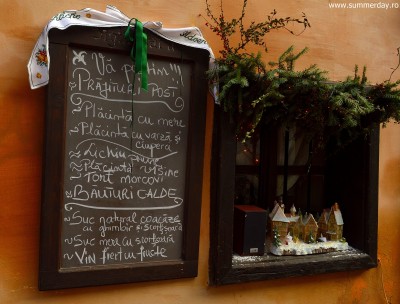 www.summerday.ro
Vă poftim!!!
PRĂJITURI POST
Plăcintă cu mere
Plăcintă cu varză și
ciuperci
Plăcintă VIȘINE
Tort morcovi
BĂUTURI CALDE
Suc natural coacăze
cu ghimbir și scorțișoară
Suc mere cu scorțișoară
Vin fiert cu fructe